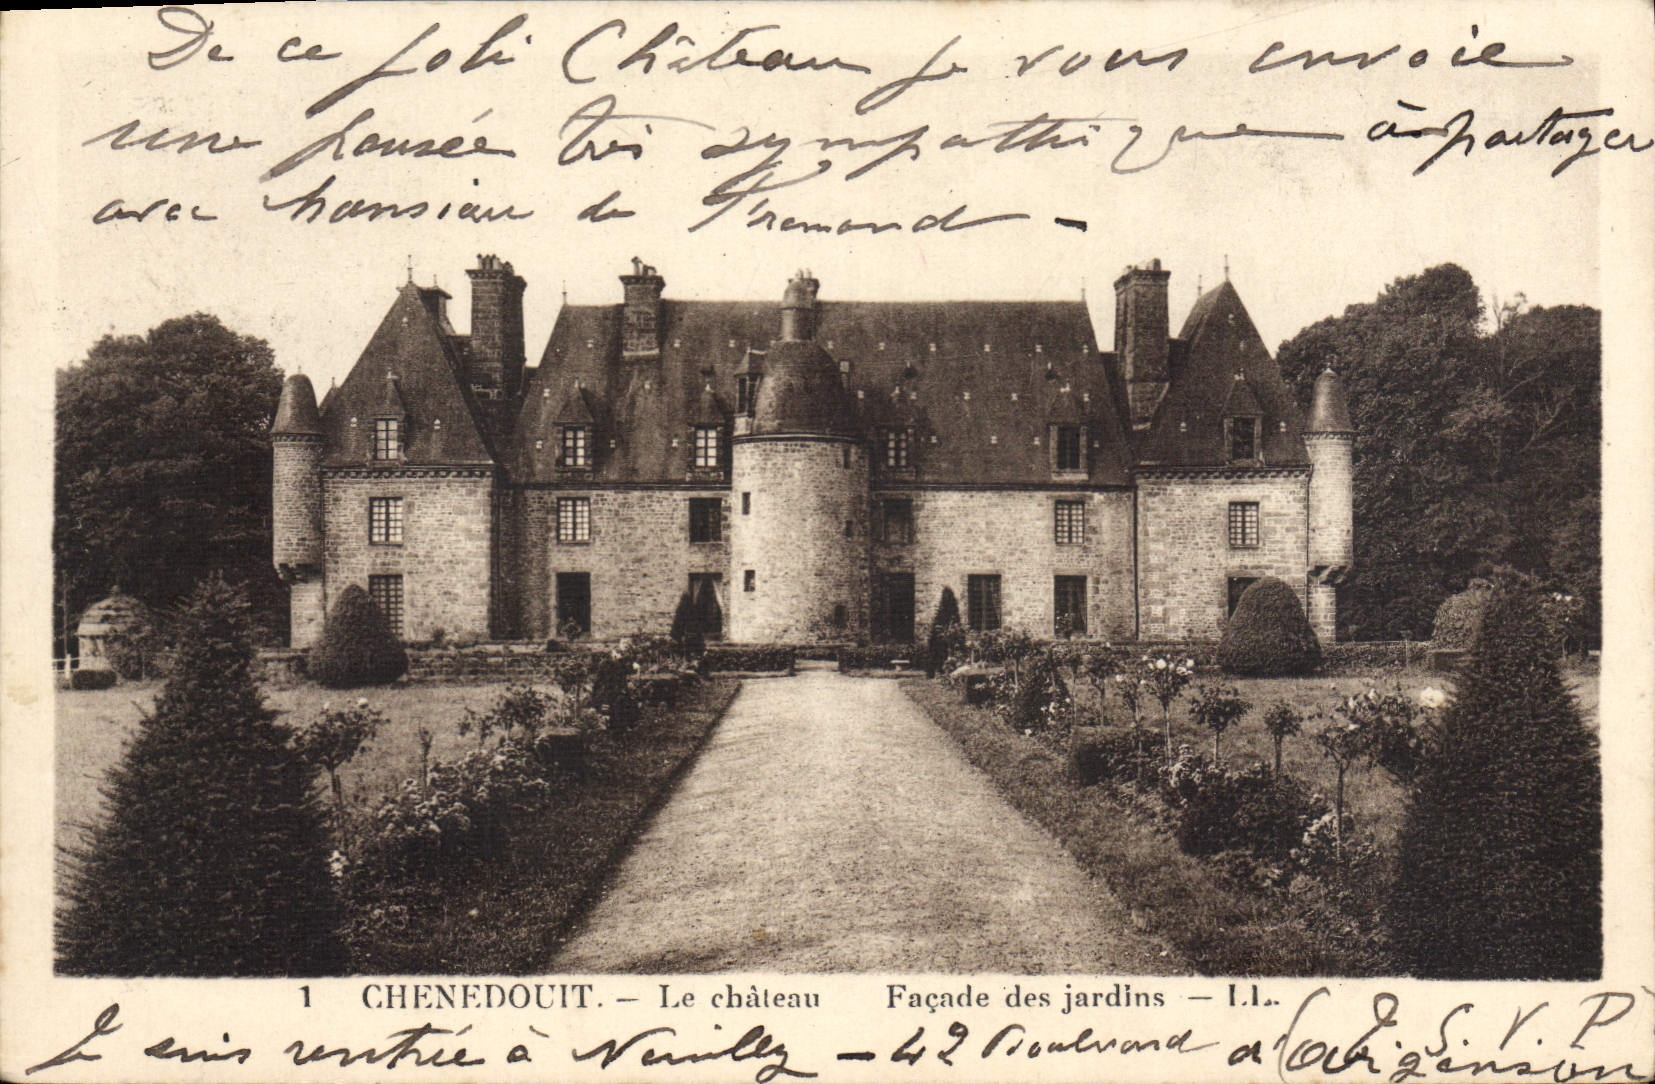 De ce joli Château je vous envoie
une pensée très sympathique à partager
avec monsieur de Fremond -
1 CHENEDOUIT. — Le château Façade des jardins — LL.
Je suis rentrée à Neuilly - 42 Boulevard d'Argenson
S V P